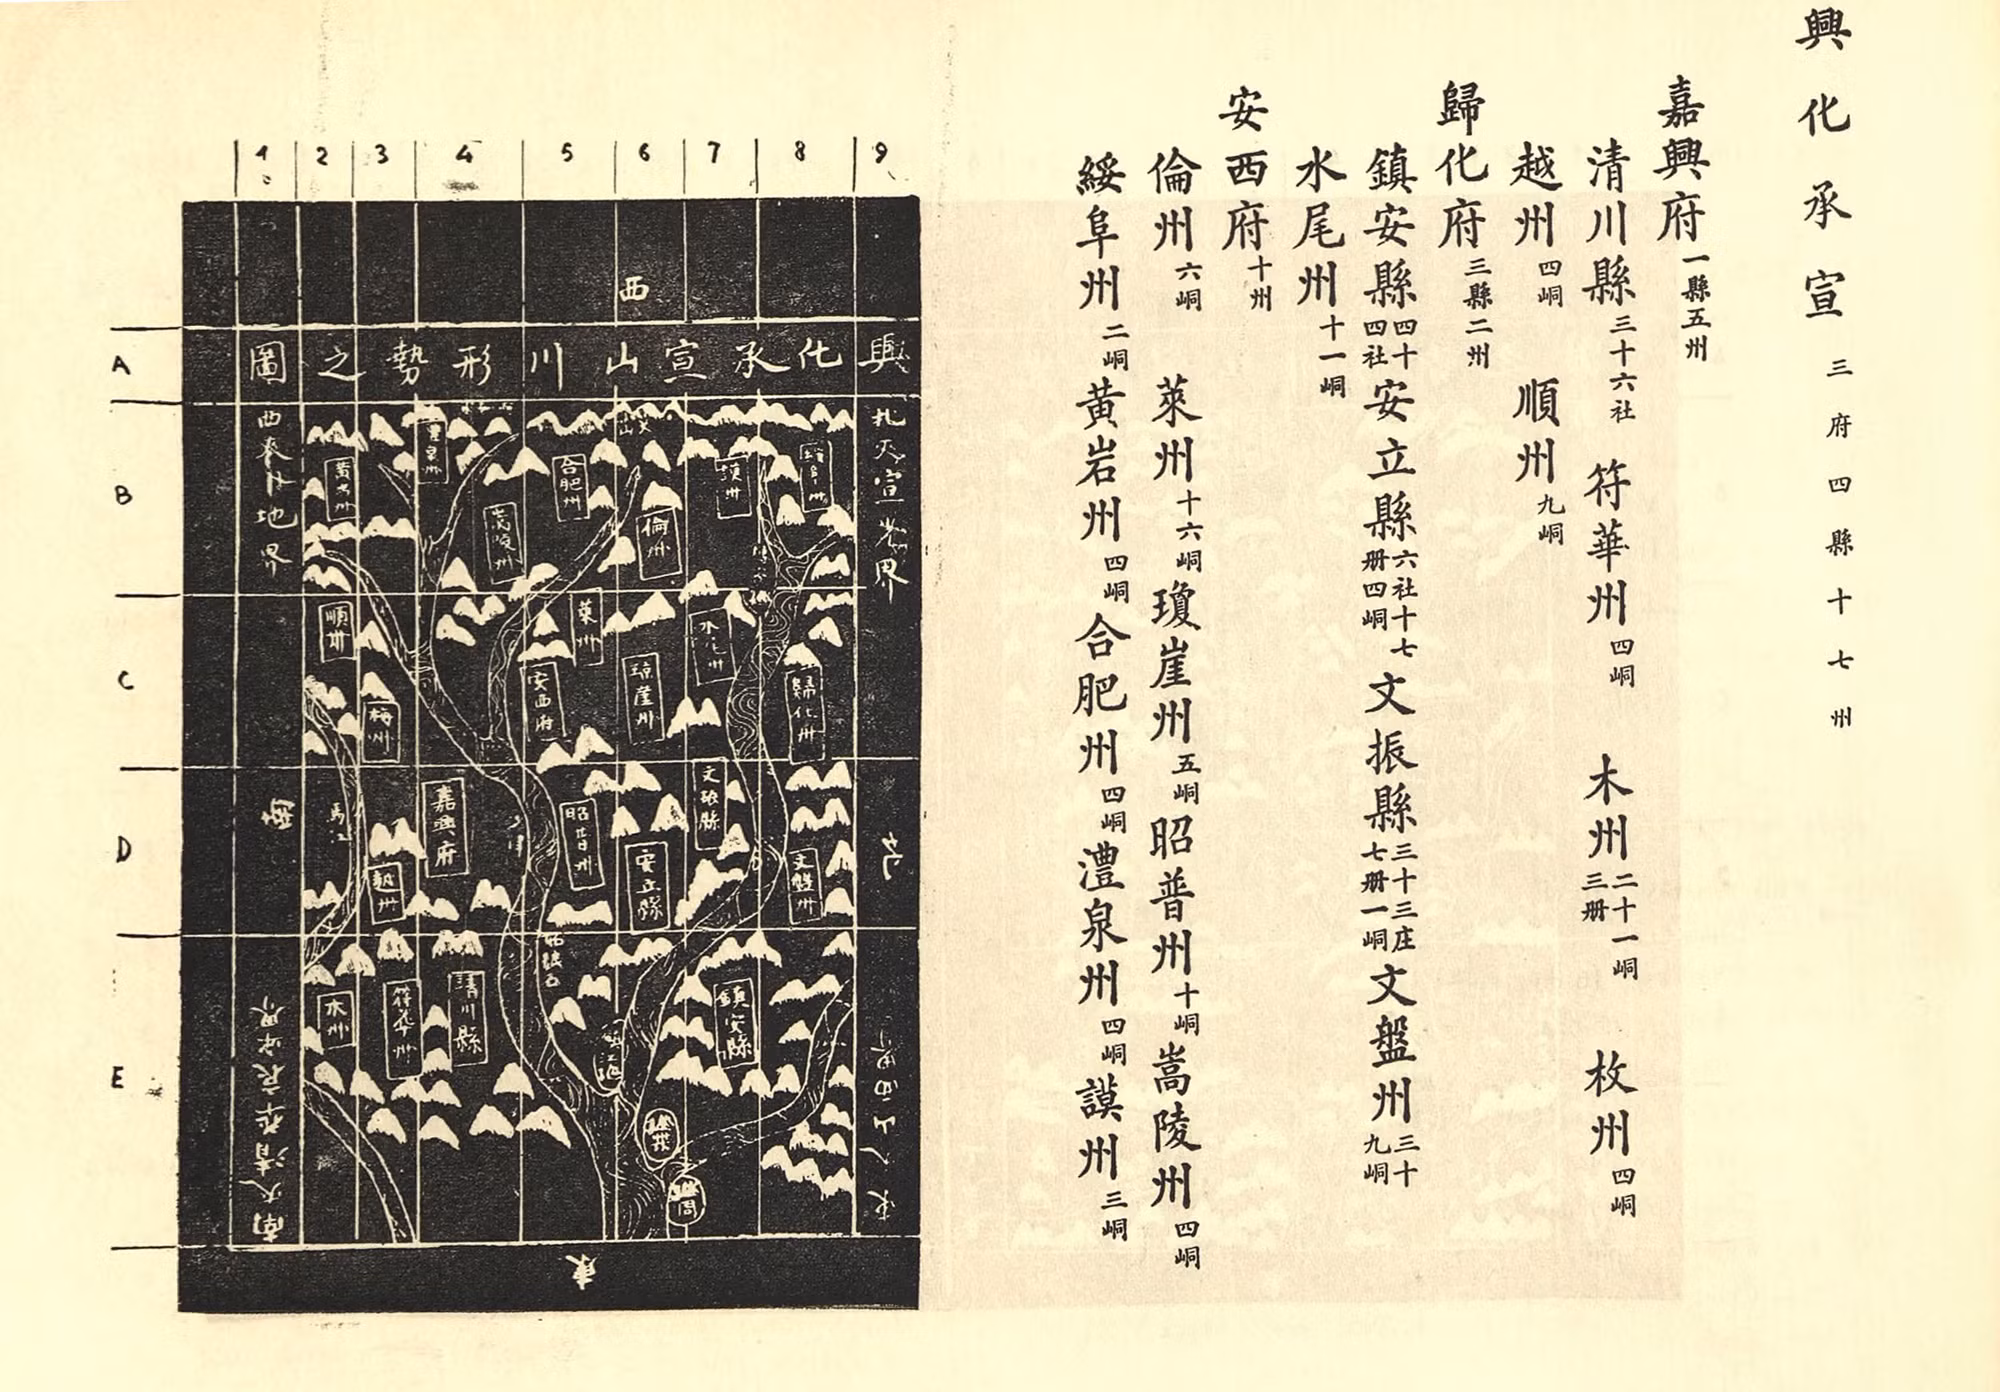 興化承宣 三府四縣十七州
嘉興府 一縣五州
清川縣 三十六社 符華州 四峒 木州 二十一峒三册 枚州 四峒
越州 四峒 順州 九峒
歸化府 三縣二州
鎮安縣 四十四社 安立縣 六社十七册四峒 文振縣 三十三庄七册一峒 文盤州 三十九峒
水尾州 十一峒
安西府 十州
倫州 六峒 萊州 十六峒 瓊崖州 五峒 昭普州 十峒 嵩陵州 四峒
綏阜州 二峒 黄岩州 四峒 合肥州 四峒 澧泉州 四峒 謨州 三峒
1 2 3 4 5 6 7 8 9
A
B
C
D
E
西
興化承宣山川形勢之圖
黄岩州
合肥州
嵩陵州
倫州
謨州
綏阜州
順州
萊州
安西府
瓊崖州
水尾州
歸化州
梅州
嘉興府
昭普州
安立縣
文振縣
文盤州
越州
木州
符華州
清川縣
鎮安縣
東